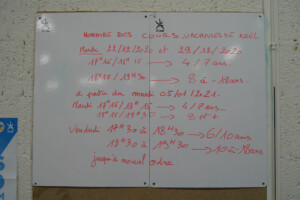 HORAIRE DES COURS VACANCES NOEL
Mardi 22/12/2020 et 29/12/2020
17H15/18H15 → 4/7ans.
18H15/19H30 → 8 à 18ans.
a partir du mardi 05/01/2021.
Mardi 17H15/18H15 → 4/7ans
18H15/19H30 → 8 et +
Vendredi 17H30 à 18H30 → 6/10ans
18H30 à 19H30 → 10 à 18ans
jusqu'à nouvel ordre